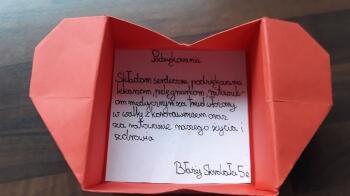 Podziękowania
Składam serdeczne podziękowania
lekarzom, pielęgniarkom, ratownik
om medycznym za trud włożony
w walkę z koronawirusem oraz
za ratowanie naszego życia i
zdrowia
Błażej 5e